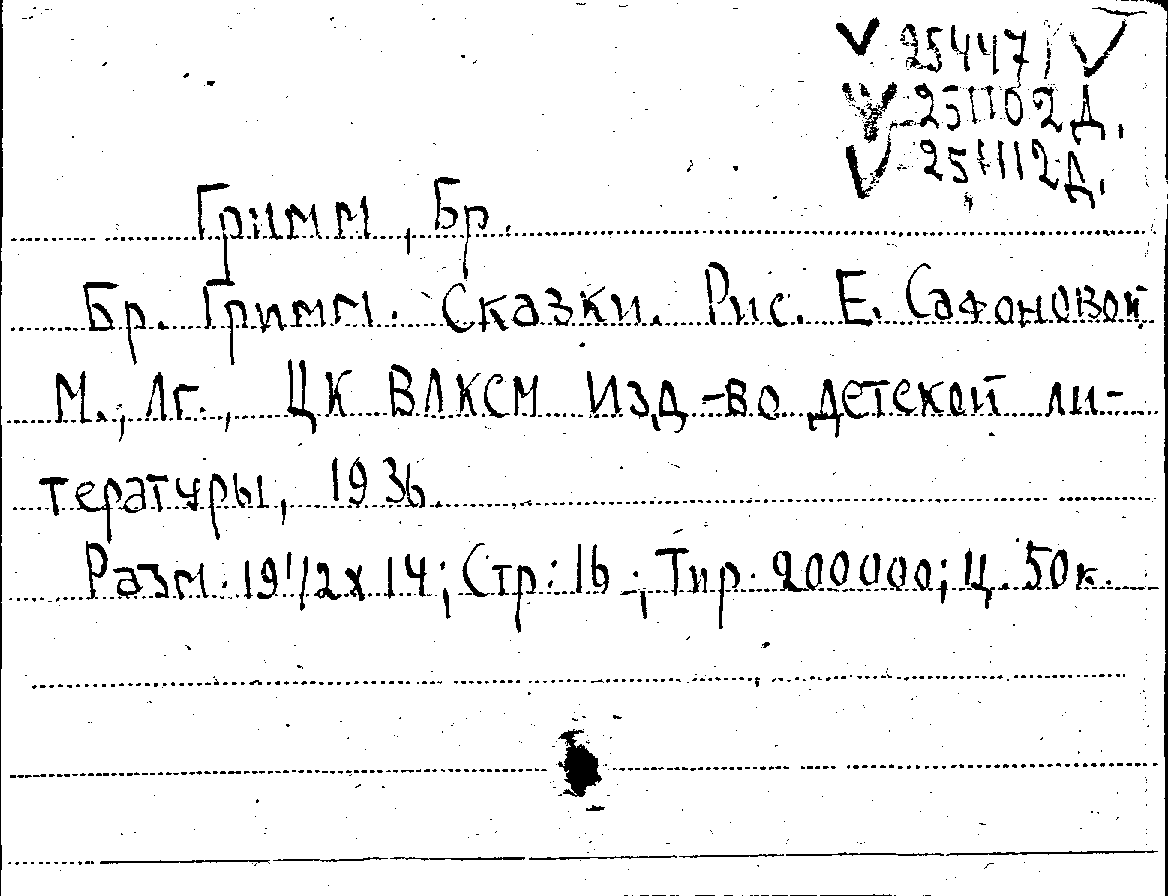 25447
251102 Д.
251112 Д.
Гримм, Бр.
Бр. Гримм. Сказки. Рис. Е. Сафоновой
М., Лг., ЦК ВЛКСМ Изд-во детской ли-
тературы, 1936.
Разм. 19 1/2 х 14; Стр: 16; Тир. 200000; Ц. 50к.